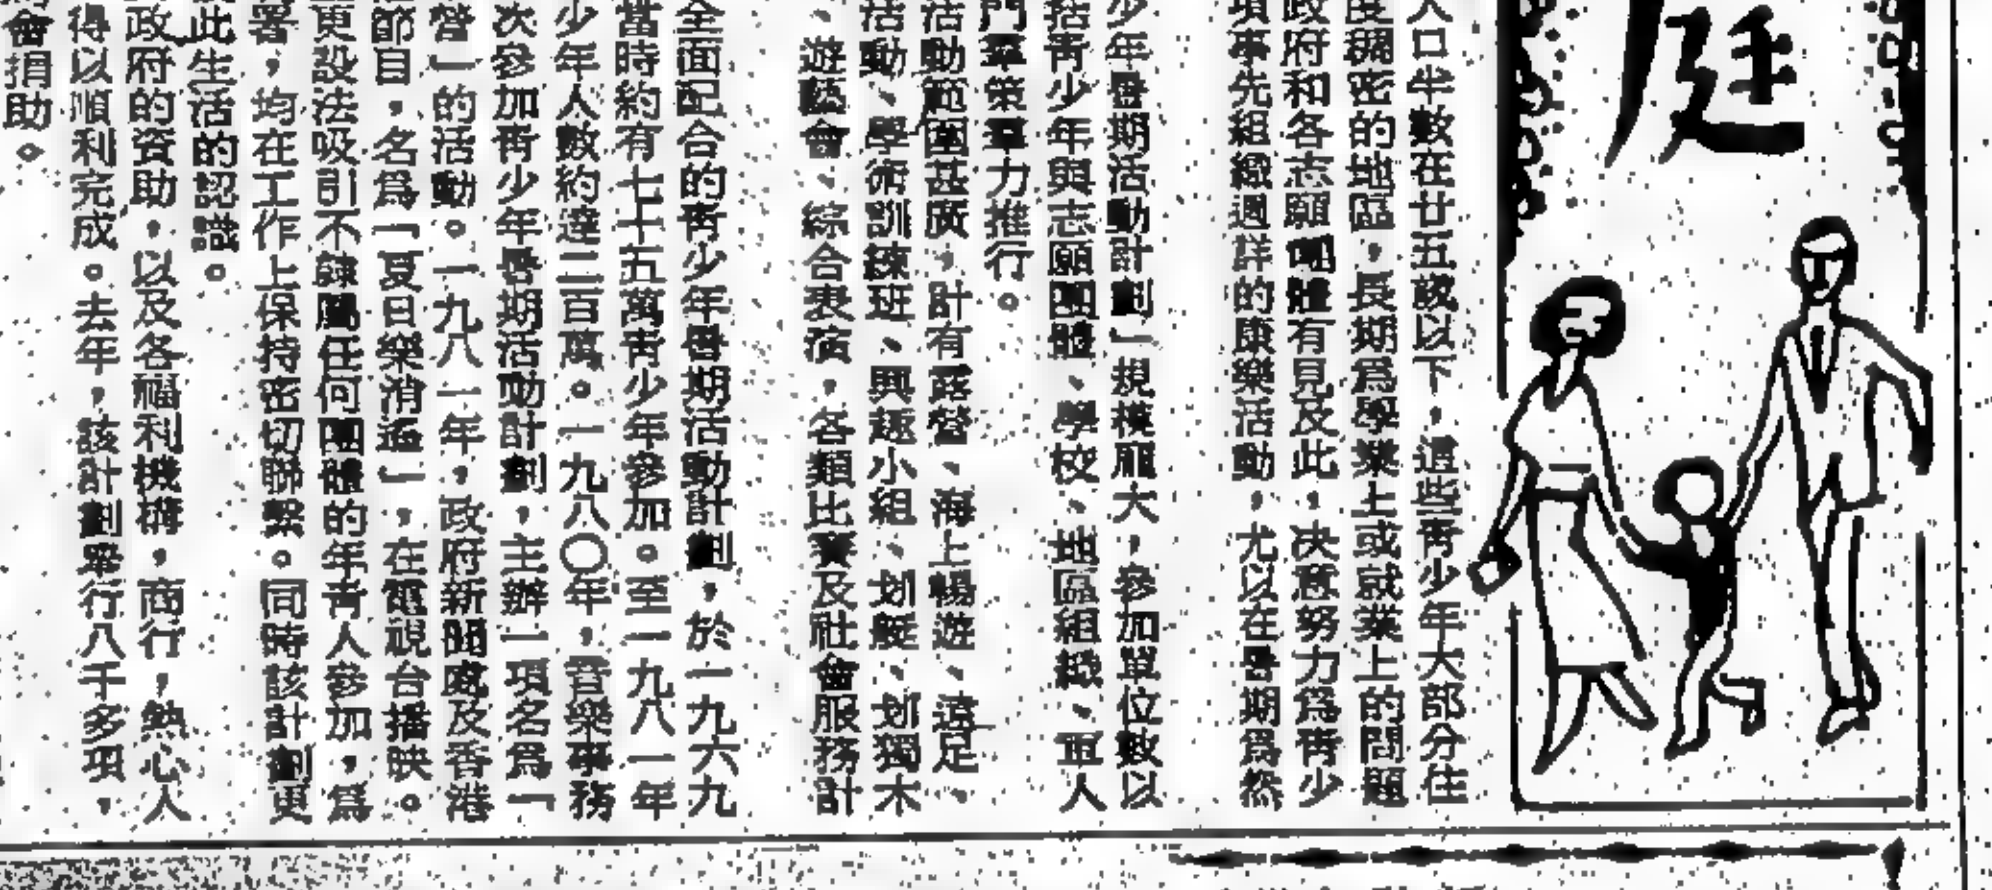 庭
人口半數在廿五歲以下，這些靑少年大部分住
度稠密的地區，長期爲學業上或就業上的問題
政府和各志願團體有見及此，决意努力爲靑少
項事先組織週詳的康樂活動，尤以在暑期爲然
少年暑期活動計劃」規模龐大，參加單位數以
括靑少年與志願團體、學校、地區組織、軍人
門羣策羣力推行。
活動範圍甚廣，計有露營、海上暢遊、遠足、
活動、學術訓練班、興趣小組、划艇、划獨木
、遊藝會、綜合表演，各類比賽及社會服務計
全面配合的靑少年暑期活動計劃，於一九六九
當時約有七十五萬靑少年參加。至一九八一年
少年人數約達二百萬。一九八〇年，音樂事務
次參加靑少年暑期活動計劃，主辦一項名爲「
營」的活動。一九八一年，政府新聞處及香港
節目，名爲「夏日樂消遙」，在電視台播映。
更設法吸引不隸屬任何團體的年靑人參加，爲
署，均在工作上保持密切聯繫。同時該計劃更
此生活的認識。
政府的資助，以及各福利機構，商行，熱心人
得以順利完成。去年，該計劃舉行八千多項，
會捐助。